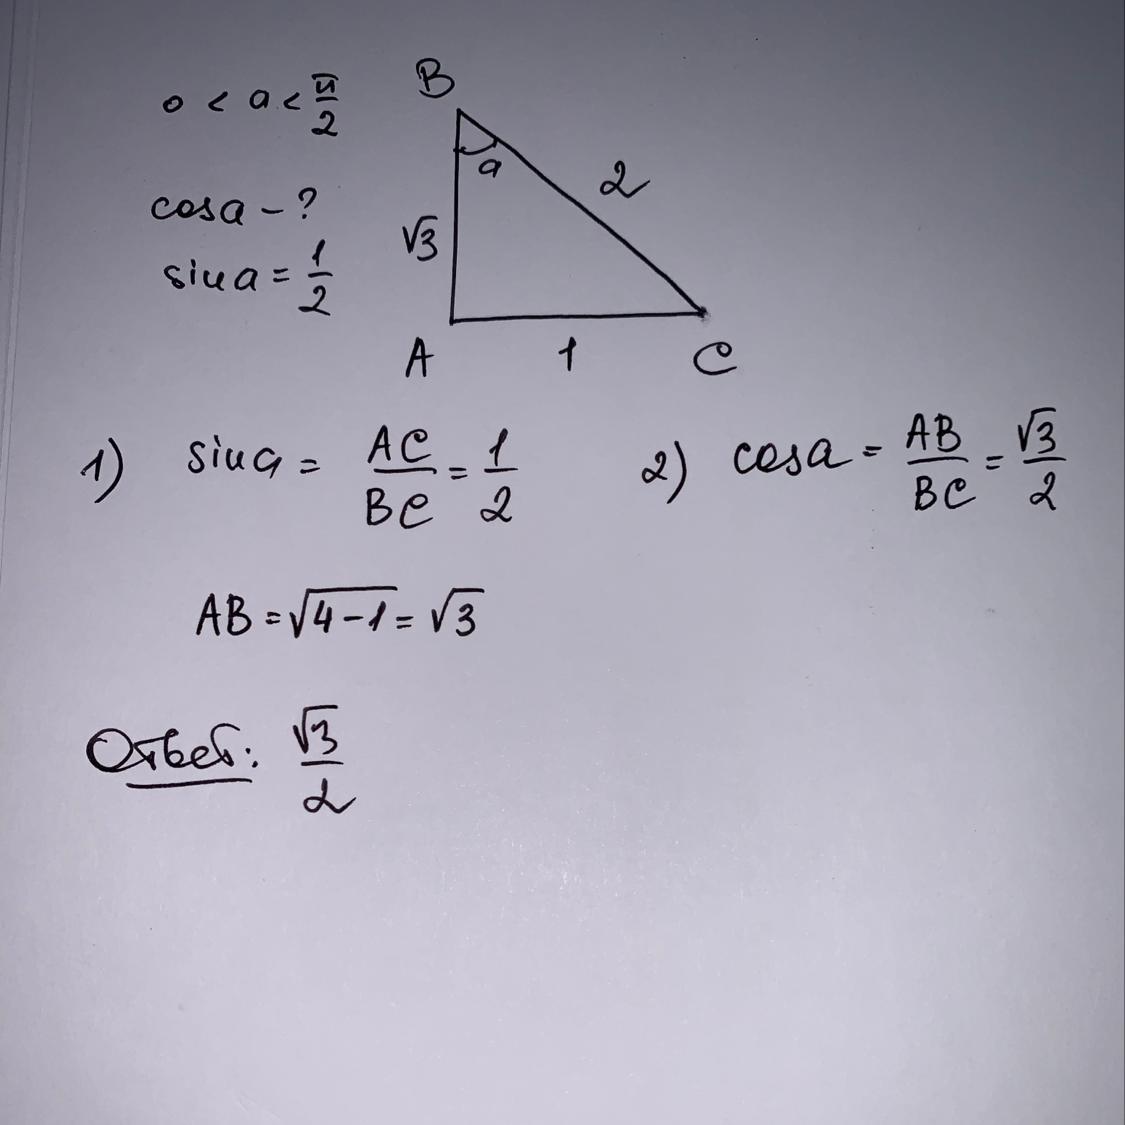 0 < a < π/2
cos a - ?
sin a = 1/2
B
a
2
√3
A
1
C
1) sin a = AC/BC = 1/2
2) cos a = AB/BC = √3/2
AB = √4-1 = √3
Ответ: √3/2